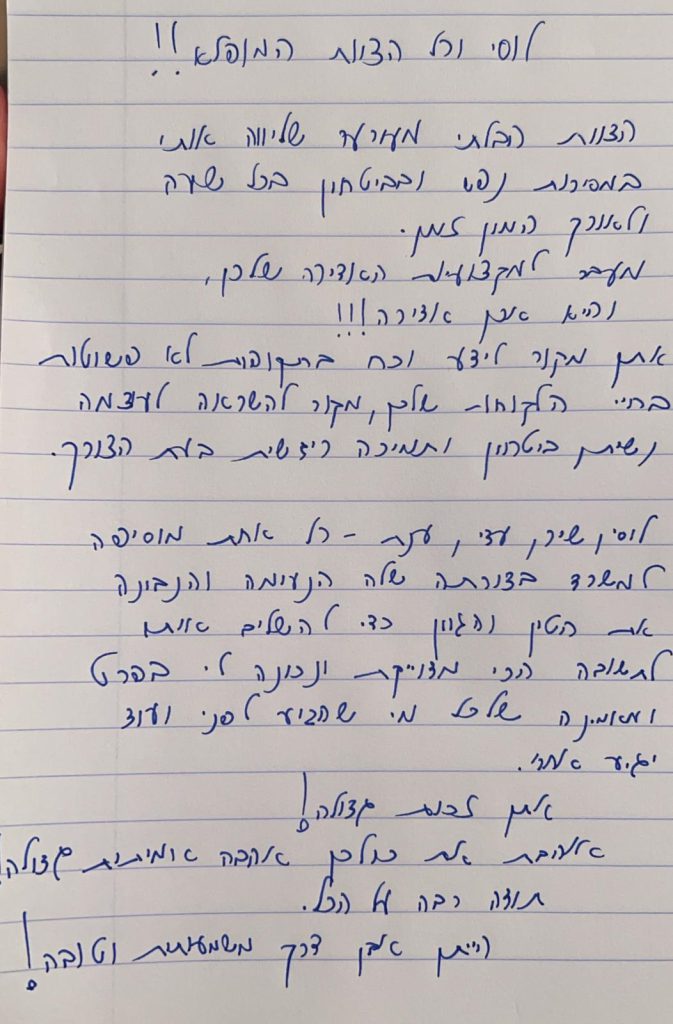 לוסי וכל הצוות המופלא!!
הצוות הבלתי מעורער שליווה אותי
במסירות נפש ובביטחון בכל שעה
ולאורך המון זמן.
מעבר למקצועיות האדירה שלכן,
והיא אכן אדירה!!!
אתן מקור לידע וכח בתקופות לא פשוטות
בחיי הלקוחות שלכן, מקור להשראה לעוצמה
נשית, ביטחון ותמיכה ריגשית בעת הצורך.
לוסי, שירן, עדי, ענת - כל אחת מוסיפה
למשרד בצורתה שלה הנעימה והנבונה
את הטון והגוון כדי להשלים אותו
לתשובה הכי מדוייקת ונכונה לי בפרט
ומאמינה שלכל מי שהגיע לפני ועוד
יגיע אחרי.
אתן לבנות גדולה!
אוהבת את כולכן אהבה אמיתית גדולה!
תודה רבה על הכל.
הייתן אבן דרך משמעותית וטובה!